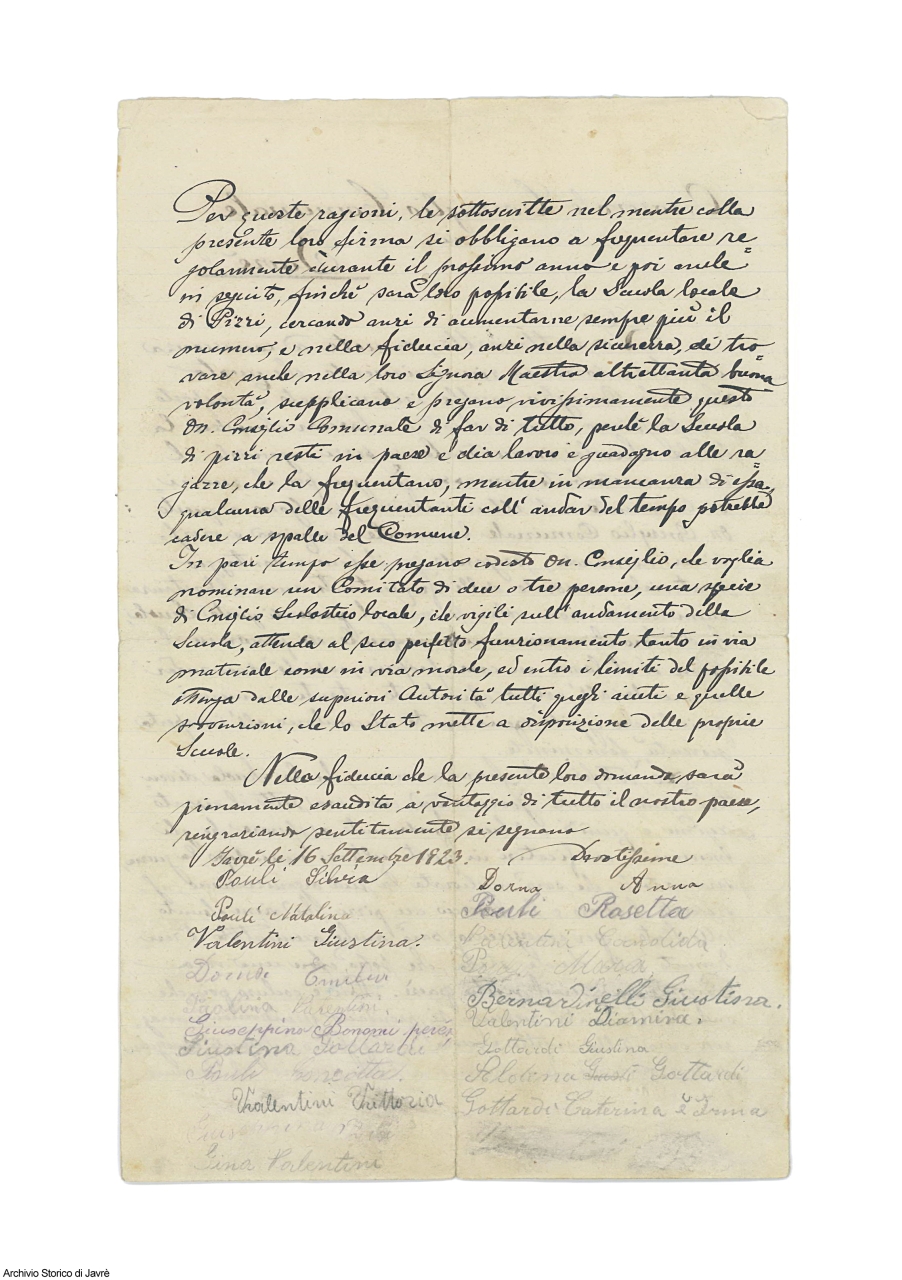 Per queste ragioni, le sottoscritte nel mentre colla
presente loro firma si obbligano a frequentare re=
golarmente durante il prossimo anno e poi anche
in seguito, finchè sarà loro possibile, la Scuola locale
di Pizzi, cercando anzi di aumentarne sempre più il
numero, e nella fiducia, anzi nella sicurezza, di tro=
vare anche nella loro Signora Maestra altrettanta buona
volontà, supplicano e pregano vivissimamente questo
On. Consiglio Comunale di far di tutto, perchè la Scuola
di pizzi resti in paese e dia lavoro e guadagno alle ra=
gazze, che la frequentano, mentre in mancanza di essa,
qualcuna delle frequentanti coll' andar del tempo potrebbe
cadere a spalle del Comune.
In pari tempo esse pregano codesto On. Consiglio, che voglia
nominare un Comitato di due o tre persone, una specie
di Consiglio Scolastico locale, che vigili sull' andamento della
Scuola, attenda al suo perfetto funzionamento tanto in via
materiale come in via morale, ed entro i limiti del possibile
ottenga dalle superiori Autorità tutti quegli aiuti e quelle
sovvenzioni, che lo Stato mette a disposizione delle proprie
Scuole.
Nella fiducia che la presente loro domanda sarà
pienamente esaudita a vantaggio di tutto il nostro paese,
ringraziando sentitamente si segnano
Javrè li 16 Settembre 1923.
Devotissime
Pouli Silvia
Dorna Anna
Pouli Natalina
Pauli Rosetta
Valentini Giustina.
Valentini Candida
Maria
Bernardinelli Giustina.
Valentini.
Valentini Diamira.
Giuseppina Bonomi
Giustina Gottardi
Gottardi Giustina
Pauli
Gottardi
Valentini Vittoria
Gottardi Caterina e Irma
Gina Valentini
Archivio Storico di Javrè